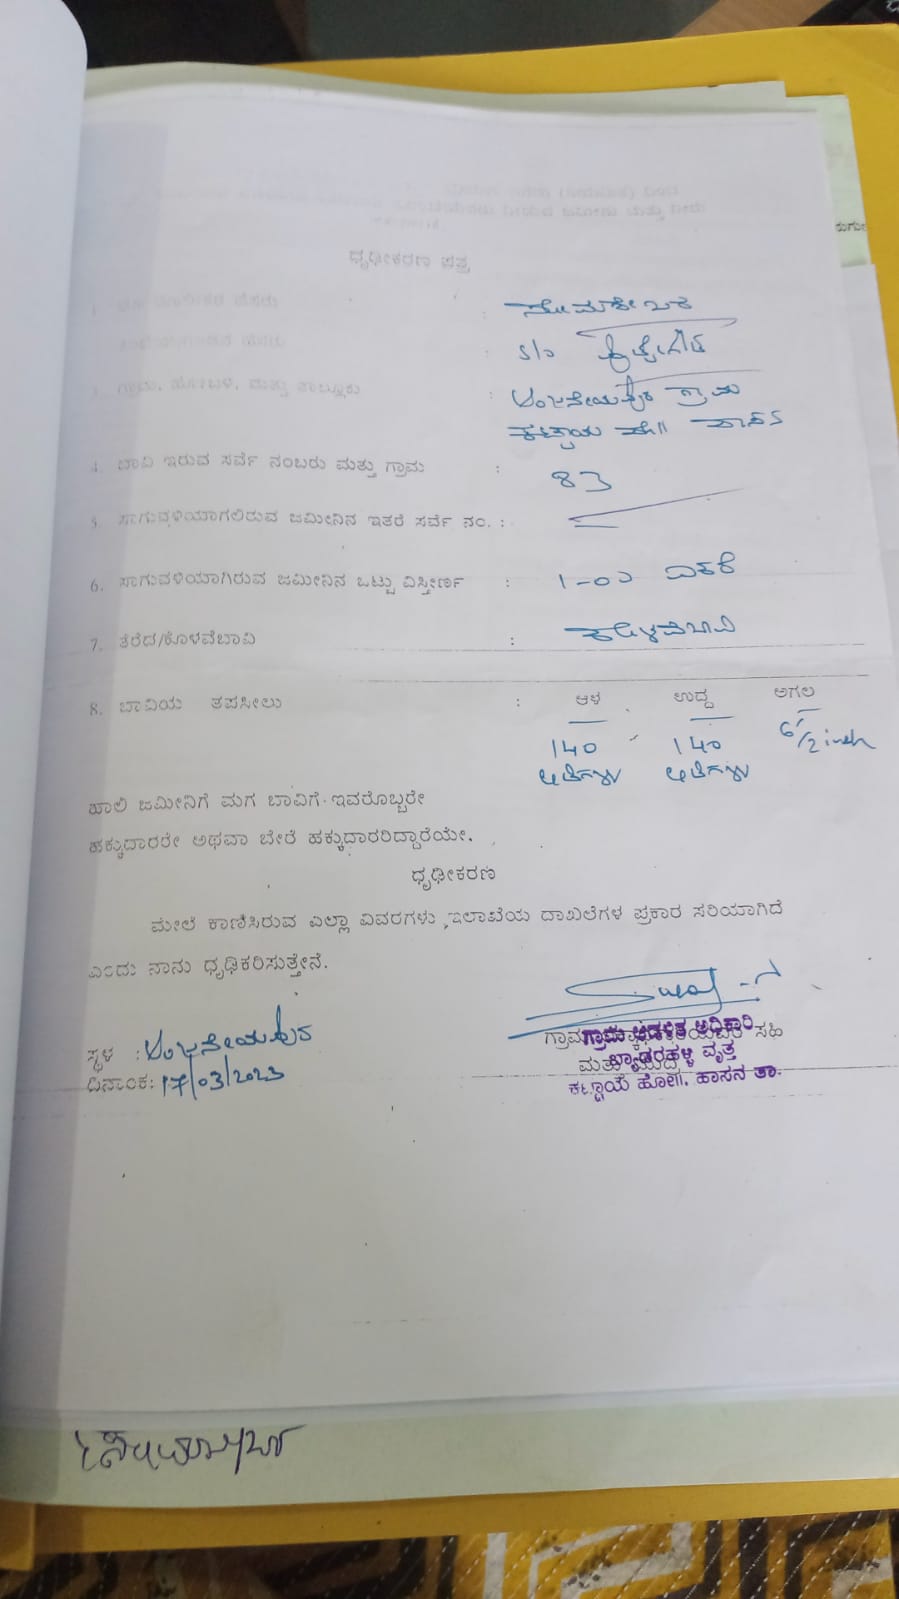 ಧೃಢೀಕರಣ ಪತ್ರ
ಸೋಮಶೇಖರ
S/o
3. ಗ್ರಾಮ, ಹೋಬಳಿ, ಮತ್ತು ತಾಲ್ಲೂಕು : ಆಂಜನೇಯಪುರ ಗ್ರಾಮ
ಕಟ್ಟಾಯ ಹೋ॥ ಹಾಸನ
4. ಬಾವಿ ಇರುವ ಸರ್ವೆ ನಂಬರು ಮತ್ತು ಗ್ರಾಮ : 83
5. ಸಾಗುವಳಿಯಾಗಲಿರುವ ಜಮೀನಿನ ಇತರೆ ಸರ್ವೆ ನಂ. :
6. ಸಾಗುವಳಿಯಾಗಿರುವ ಜಮೀನಿನ ಒಟ್ಟು ವಿಸ್ತೀರ್ಣ : ಎಕರೆ
7. ತೆರೆದ/ಕೊಳವೆಬಾವಿ : ಕೊಳವೆಬಾವಿ
8. ಬಾವಿಯ ತಪಸೀಲು : ಆಳ ಉದ್ದ ಅಗಲ
140 140 6 1/2 inch
ಅಡಿಗಳು ಅಡಿಗಳು
ಹಾಲಿ ಜಮೀನಿಗೆ ಮಗ ಬಾವಿಗೆ ಇವರೊಬ್ಬರೇ
ಹಕ್ಕುದಾರರೇ ಅಥವಾ ಬೇರೆ ಹಕ್ಕುದಾರರಿದ್ದಾರೆಯೇ.
ಧೃಢೀಕರಣ
ಮೇಲೆ ಕಾಣಿಸಿರುವ ಎಲ್ಲಾ ವಿವರಗಳು ,ಇಲಾಖೆಯ ದಾಖಲೆಗಳ ಪ್ರಕಾರ ಸರಿಯಾಗಿದೆ
ಎಂದು ನಾನು ಧೃಢಿಕರಿಸುತ್ತೇನೆ.
ಗ್ರಾಮ ಸಹಿ
ಗ್ರಾಮ ಆಡಳಿತ ಅಧಿಕಾರಿ
ಸ್ಥಳ : ಆಂಜನೇಯಪುರ
ಬ್ಯಾಡರಹಳ್ಳಿ ವೃತ್ತ
ದಿನಾಂಕ: 17/03/2023
ಕಟ್ಟಾಯ ಹೋ॥. ಹಾಸನ ತಾ.